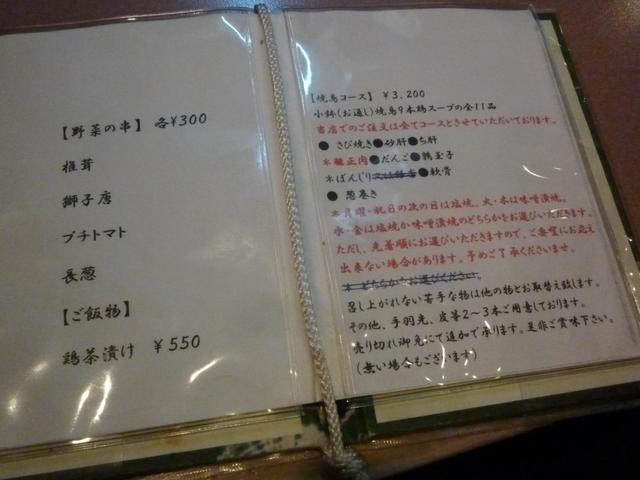 【野菜の串】 各¥300
椎茸
獅子唐
プチトマト
長葱
【ご飯物】
鶏茶漬け ¥550
【焼鳥コース】 ¥3,200
小鉢(お通し)焼鳥9本鶏スープの全11品
当店でのご注文は全てコースとさせていただいております。
● さび焼き●砂肝●ち肝
●だんご●鶉玉子
*ぼんじり ●軟骨
● 葱巻き
*月曜・祝日の次の日は塩焼、火・木は味噌漬焼、
水・金は塩焼か味噌漬焼のどちらかをお選びいただきます。
ただし、先着順にお選びいただきますので、ご要望にお応え
出来ない場合があります。予めご了承くださいませ。
*どちらかをお選びください。
召し上がれない苦手な物は他の物とお取替え致します。
その他、手羽先、皮等2~3本ご用意しております。
売り切れ御免にて追加で承ります。是非ご賞味下さい。
(無い場合もございます)